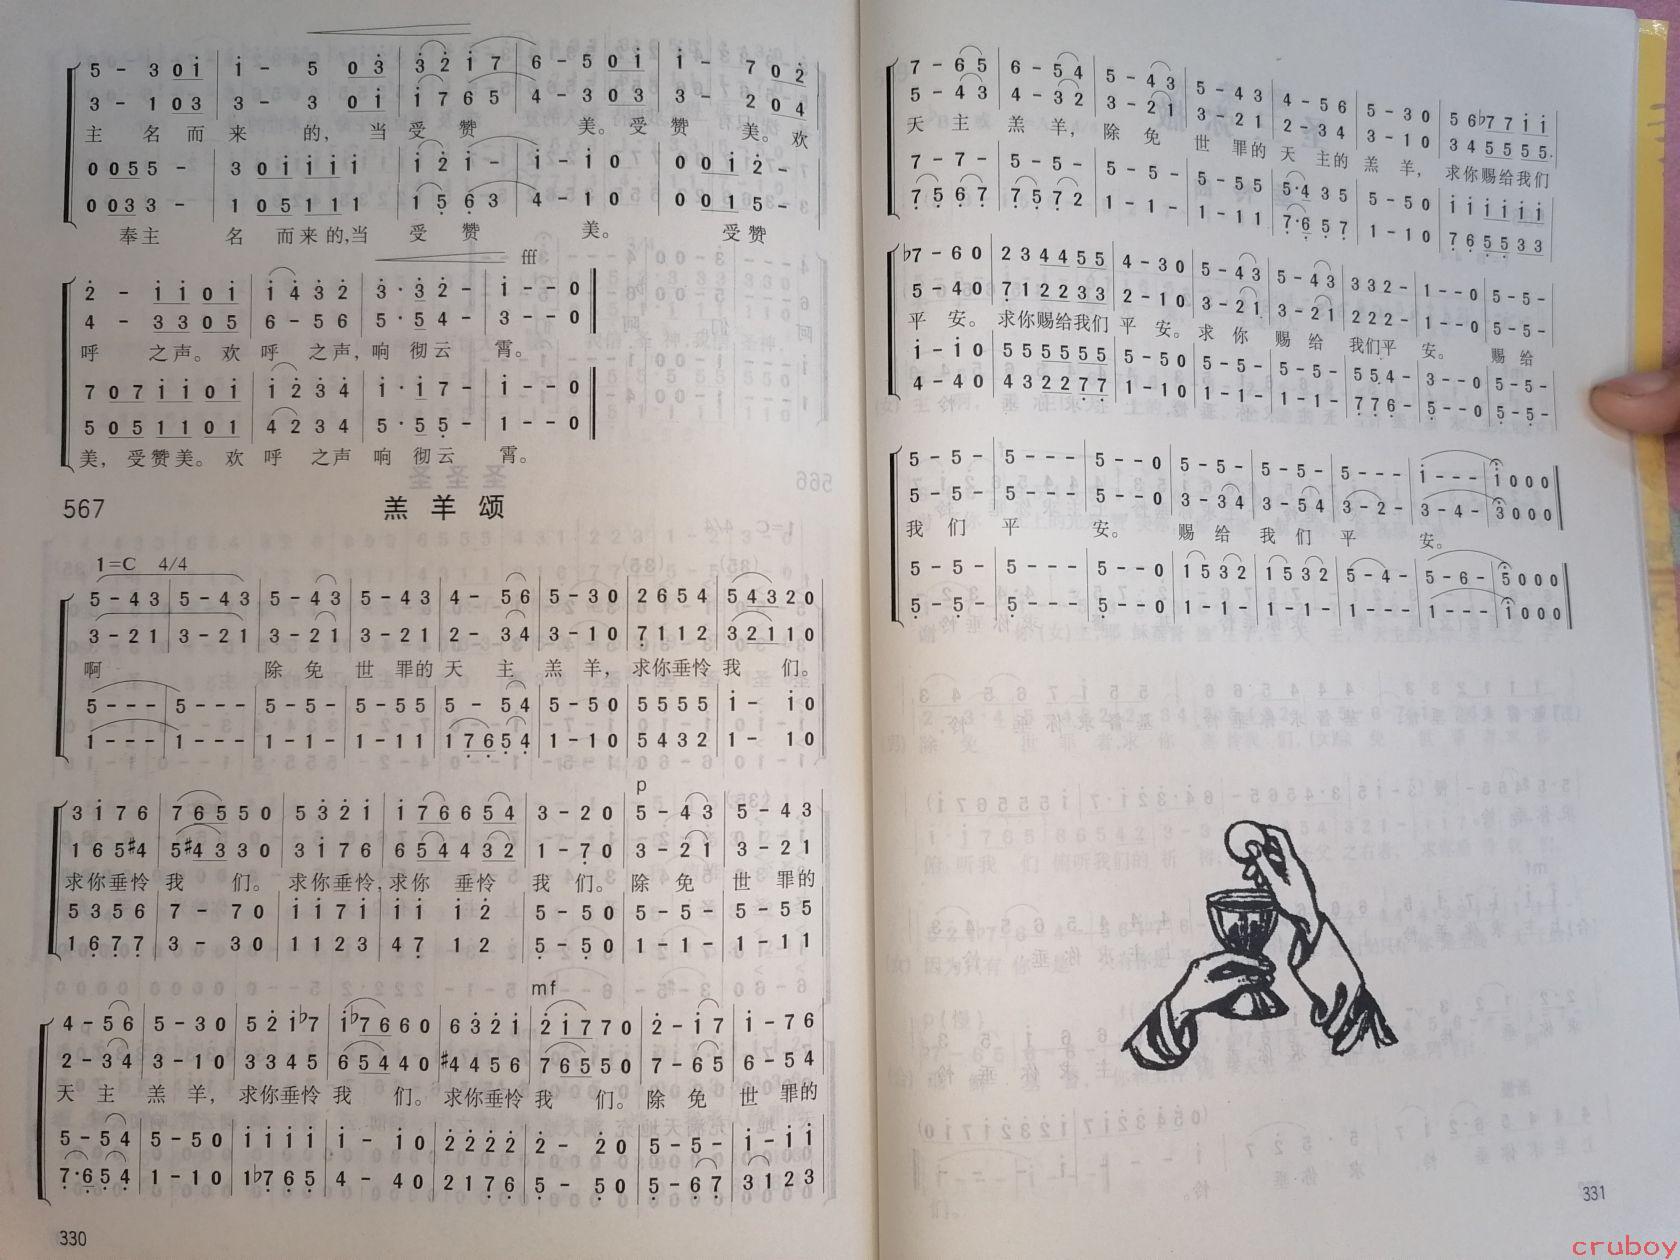 5 - 3 0 1 | 1 - 5 0 3 | 3 2 1 7 | 6 - 5 0 1 | 1 - 7 0 2
3 - 1 0 3 | 3 - 3 0 1 | 1 7 6 5 | 4 - 3 0 3 | 3 - 2 0 4
主 名 而 来 的, 当 受 赞 美。 受 赞 美。 欢
0 0 5 5 - | 3 0 1 1 1 1 1 | 1 2 1 - | 1 - 1 0 | 0 0 1 2 -
0 0 3 3 - | 1 0 5 1 1 1 | 1 5 6 3 | 4 - 1 0 | 0 0 1 5 -
奉主 名 而来的,当 受 赞 美。 受赞
fff
2 - 1 1 0 1 | 1 4 3 2 | 3 · 3 2 - | 1 - - 0
4 - 3 3 0 5 | 6 - 5 6 | 5 · 5 4 - | 3 - - 0
呼 之声。 欢 呼 之声, 响 彻云 霄。
7 0 7 1 1 0 1 | 1 2 3 4 | 1 · 1 7 - | 1 - - 0
5 0 5 1 1 1 0 1 | 4 2 3 4 | 5 · 5 5 - | 1 - - 0
美, 受赞美。 欢 呼 之声 响 彻云 霄。
567 羔 羊 颂
1=C 4/4
5 - 4 3 | 5 - 4 3 | 5 - 4 3 | 5 - 4 3 | 4 - 5 6 | 5 - 3 0 | 2 6 5 4 | 5 4 3 2 0
3 - 2 1 | 3 - 2 1 | 3 - 2 1 | 3 - 2 1 | 2 - 3 4 | 3 - 1 0 | 7 1 1 2 | 3 2 1 1 0
啊 除 免 世 罪的 天 主 羔 羊, 求你垂怜 我 们。
5 - - - | 5 - - - | 5 - 5 - | 5 - 5 5 | 5 - 5 4 | 5 - 5 0 | 5 5 5 5 | 1 - 1 0
1 - - - | 1 - - - | 1 - 1 - | 1 - 1 1 | 1 7 6 5 4 | 1 - 1 0 | 5 4 3 2 | 1 - 1 0
p
3 1 7 6 | 7 6 5 5 0 | 5 3 2 1 | 1 7 6 6 5 4 | 3 - 2 0 | 5 - 4 3 | 5 - 4 3
1 6 5 #4 | 5 #4 3 3 0 | 3 1 7 6 | 6 5 4 4 3 2 | 1 - 7 0 | 3 - 2 1 | 3 - 2 1
求你垂怜 我 们。 求你垂怜, 求你 垂怜 我 们。 除 免 世 罪的
5 3 5 6 | 7 - 7 0 | 1 1 7 1 | 1 1 1 2 | 5 - 5 0 | 5 - 5 - | 5 - 5 5
1 6 7 7 | 3 - 3 0 | 1 1 2 3 | 4 7 1 2 | 5 - 5 0 | 1 - 1 - | 1 - 1 1
mf
4 - 5 6 | 5 - 3 0 | 5 2 1 ♭7 | 1 ♭7 6 6 0 | 6 3 2 1 | 2 1 7 7 0 | 2 - 1 7 | 1 - 7 6
2 - 3 4 | 3 - 1 0 | 3 3 4 5 | 6 5 4 4 0 | #4 4 5 6 | 7 6 5 5 0 | 7 - 6 5 | 6 - 5 4
天 主 羔 羊, 求你垂怜 我 们。 求你垂怜 我 们。 除 免 世 罪的
5 - 5 4 | 5 - 5 0 | 1 1 1 1 | 1 - 1 0 | 2 2 2 2 | 2 - 2 0 | 5 - 5 - | 1 - 1 1
7 · 6 5 4 | 1 - 1 0 | 1 ♭7 6 5 | 4 - 4 0 | 2 1 7 6 | 5 - 5 0 | 5 - 6 7 | 3 1 2 3
330
7 - 6 5 | 6 - 5 4 | 5 - 4 3 | 5 - 4 3 | 4 - 5 6 | 5 - 3 0 | 5 6 ♭7 7 1 1
5 - 4 3 | 4 - 3 2 | 3 - 2 1 | 3 - 2 1 | 2 - 3 4 | 3 - 1 0 | 3 4 5 5 5 5
天 主 羔 羊, 除 免 世 罪的 天 主的 羔 羊, 求你赐给我们
7 - 7 - | 5 - 5 - | 5 - 5 - | 5 - 5 5 | 5 · 4 3 5 | 5 - 5 0 | 1 1 1 1 1 1
7 5 6 7 | 7 5 7 2 | 1 - 1 - | 1 - 1 1 | 7 · 6 5 7 | 1 - 1 0 | 7 6 5 5 3 3
♭7 - 6 0 | 2 3 4 4 5 5 | 4 - 3 0 | 5 - 4 3 | 5 - 4 3 | 3 3 2 - | 1 - - 0 | 5 - 5 -
5 - 4 0 | 7 1 2 2 3 3 | 2 - 1 0 | 3 - 2 1 | 3 - 2 1 | 2 2 2 - | 1 - - 0 | 5 - 5 -
平 安。 求你赐给我们 平 安。 求 你 赐 给 我们平 安。 赐 给
1 - 1 0 | 5 5 5 5 5 5 | 5 - 5 0 | 5 - 5 - | 5 - 5 - | 5 5 4 - | 3 - - 0 | 5 - 5 -
4 - 4 0 | 4 3 2 2 7 7 | 1 - 1 0 | 1 - 1 - | 1 - 1 - | 7 7 6 - | 5 - - 0 | 5 - 5 -
5 - 5 - | 5 - - - | 5 - - 0 | 5 - 5 - | 5 - 5 - | 5 - - - | 1 - - - | 1 0 0 0
5 - 5 - | 5 - - - | 5 - - 0 | 3 - 3 4 | 3 - 5 4 | 3 - 2 - | 3 - 4 - | 3 0 0 0
我 们 平 安。 赐 给 我 们 平 安。
5 - 5 - | 5 - - - | 5 - - 0 | 1 5 3 2 | 1 5 3 2 | 5 - 4 - | 5 - 6 - | 5 0 0 0
5 - 5 - | 5 - - - | 5 - - 0 | 1 - 1 - | 1 - 1 - | 1 - - - | 1 - - - | 1 0 0 0
331
cruboy